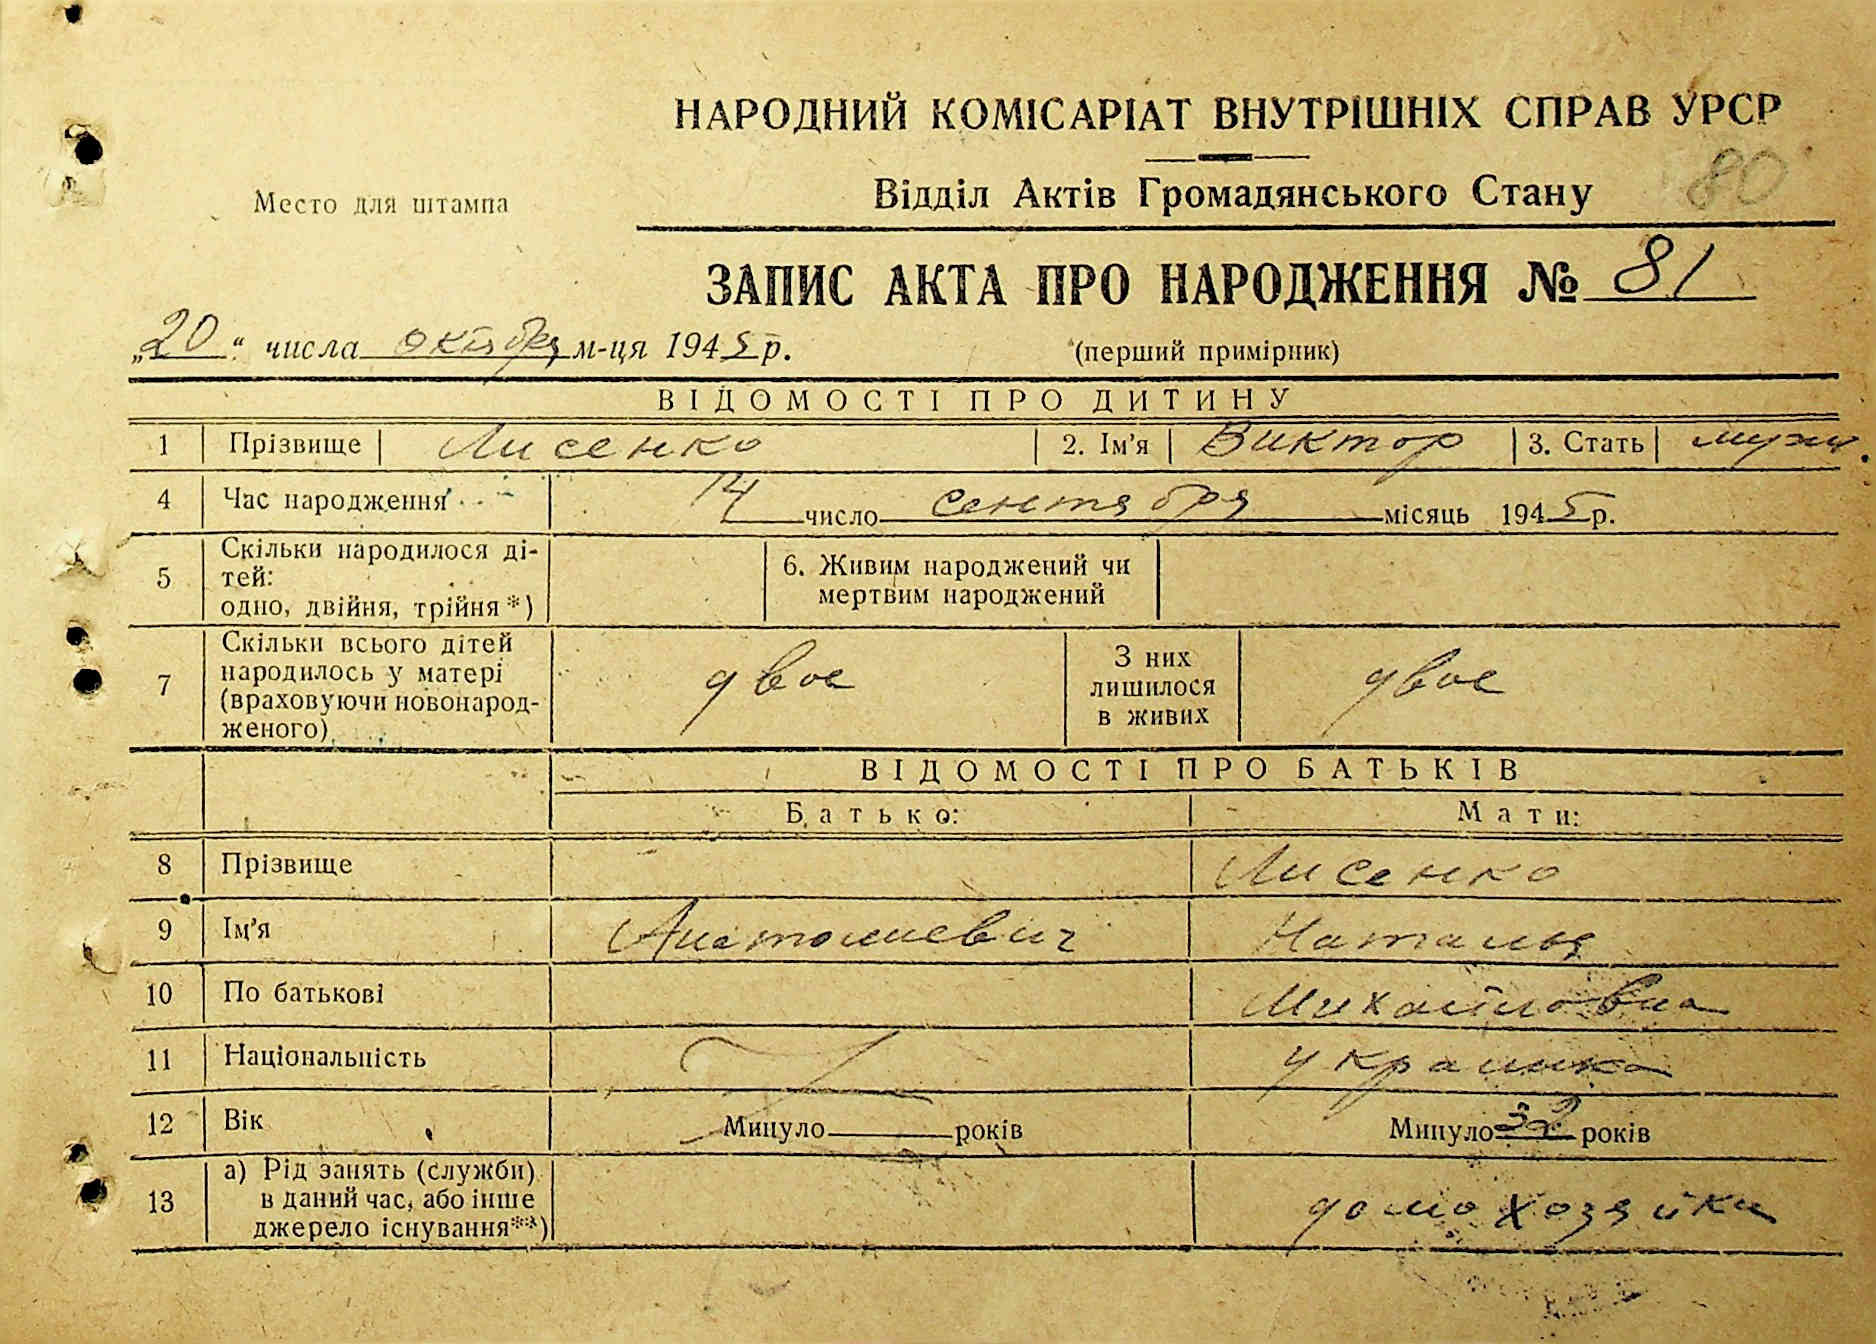 НАРОДНИЙ КОМІСАРІАТ ВНУТРІШНІХ СПРАВ УРСР
80
Место для штампа
Відділ Актів Громадянського Стану
ЗАПИС АКТА ПРО НАРОДЖЕННЯ № 81
„20" числа октября м-ця 1945 р.
(перший примірник)
ВІДОМОСТІ ПРО ДИТИНУ
1 Прізвище Лисенко 2. Ім'я Виктор 3. Стать муж.
4 Час народження 14 число сентября місяць 1945 р.
5 Скільки народилося ді-
тей:
одно, двійня, трійня*)
6. Живим народжений чи
мертвим народжений
7 Скільки всього дітей
народилось у матері
(враховуючи новонарод-
женого)
двое
З них
лишилося
в живих
двое
ВІДОМОСТІ ПРО БАТЬКІВ
Батько: Мати:
8 Прізвище Лисенко
9 Ім'я Анатолиевич Наталья
10 По батькові Михайловна
11 Національність украинка
12 Вік Минуло років Минуло 32 років
13 а) Рід занять (служби)
в даний час, або інше
джерело існування**)
домохозяйка